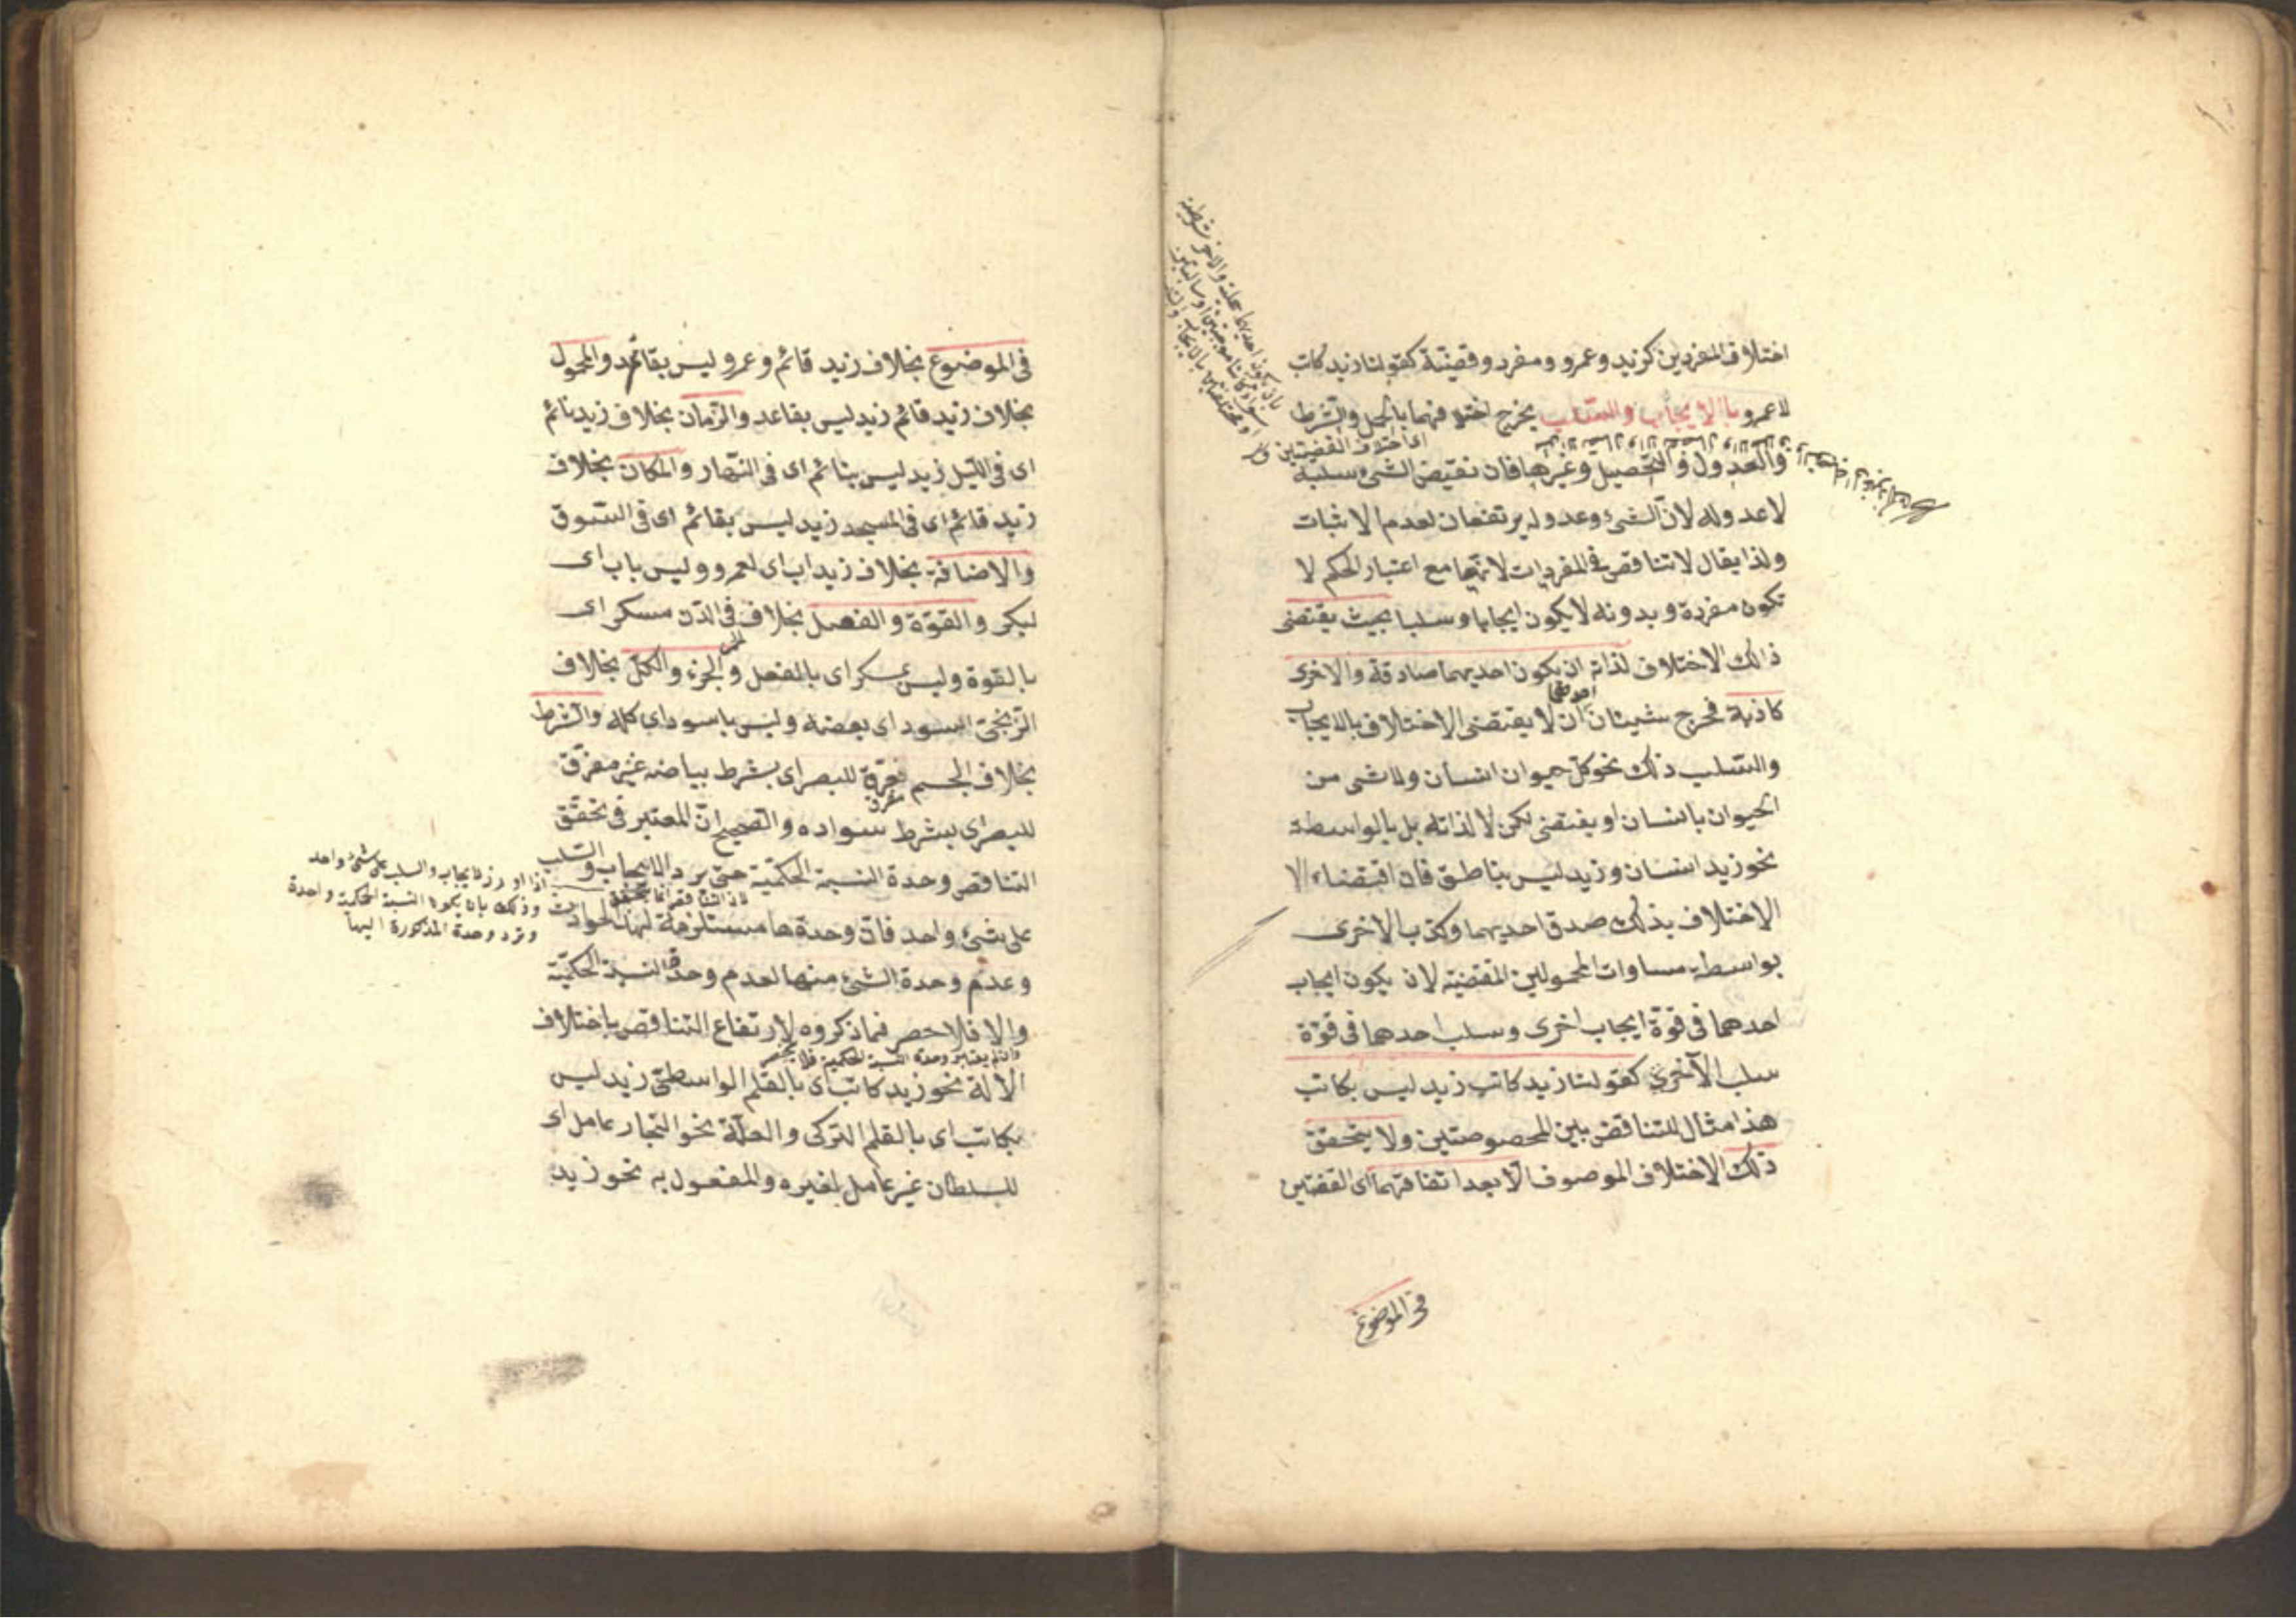 اختلاف المفردين كزيد وعمرو ومفرد وقضية كقولنا زيد كاتب
لا عمرو بالايجاب والسلب يخرج اختلافهما بالحمل والشرط
اى اختلاف القضيتين
والعدول والتحصيل وغيرها فان نقيض الشئ سلبه
لا عدوله لان الشئ وعدوله يرتفعان لعدم الاثبات
ولذا يقال لا تناقض فى المفردات لانها مع اعتبار الحكم لا
تكون مفردة وبدونه لا يكون ايجابا وسلبا بحيث يقتضى
ذالك الاختلاف لذاته ان يكون احديهما صادقة والاخرى
احدهما
كاذبة فخرج شيئان ان لا يقتضى الاختلاف بالايجاب
والسلب ذلك نحو كل حيوان انسان ولا شى من
الحيوان بانسان او يقتضى لكن لا لذاته بل بالواسطة
نحو زيد انسان وزيد ليس بناطق فان اقتضاء الا
الاختلاف بذلك صدق احديهما وكذب الاخرى
بواسطة مساوات المحمولين المقتضية لان يكون ايجاب
احدهما فى قوة ايجاب اخرى وسلب احدهما فى قوة
سلب الآخرى كقولنا زيد كاتب زيد ليس بكاتب
هذا مثال للتناقض بين المخصوصتين ولا يتحقق
ذلك الاختلاف الموصوف الا بعد اتفاقهما اى القضيتين
فى الموضوع
فى الموضوع بخلاف زيد قائم وعمرو ليس بقائم والمحمول
بخلاف زيد قائم زيد ليس بقاعد والزمان بخلاف زيد نائم
اى فى الليل زيد ليس بنائم اى فى النهار والمكان بخلاف
زيد قائم اى فى المسجد زيد ليس بقائم اى فى السوق
والاضافة بخلاف زيد اب اى لعمرو وليس باب اى
لبكر والقوة والفعل بخلاف فى الدن مسكر اى
بالقوة وليس بمسكر اى بالفعل والجزء والكل بخلاف
الزنجى اسود اى بعضه وليس باسود اى كله والشرط
بخلاف الجسم مفرق للبصر اى بشرط بياضه غير مفرق
للبصر اى بشرط سواده والصحيح ان المعتبر فى تحقق
التناقض وحدة النسبة الحكمية حتى يرد الايجاب والسلب
لان التناقض انما يتحقق
على شئ واحد فان وحدتها مستلزمة لهذا
وعدم وحدة الشئ منها لعدم وحدة النسبة الحكمية
والا فلا حصر فيما ذكروه لارتفاع التناقض باختلاف
وان لم يعتبر وحدة النسبة الحكمية فلا
الالة نحو زيد كاتب اى بالقلم الواسطى زيد ليس
بكاتب اى بالقلم التركى والعلة نحو النجار عامل اى
للسلطان غير عامل لغيره والمفعول به نحو زيد
اذا اورد الايجاب والسلب على شئ واحد
وذلك بان يكون النسبة الحكمية واحدة
وترد وحدة المذكورة اليها